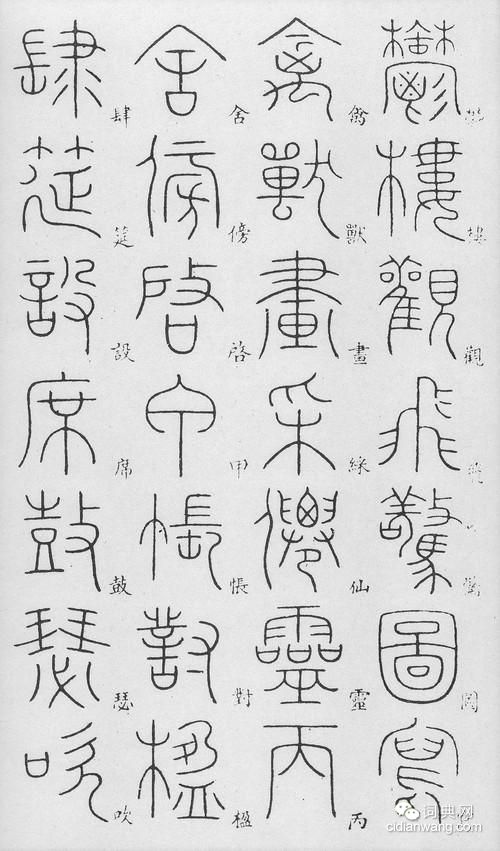 鬱樓觀飛驚圖寫
禽獸畫綵仙靈丙
舍傍啓甲帳對楹
肆筵設席鼓瑟吹
词典网
cidianwang.com